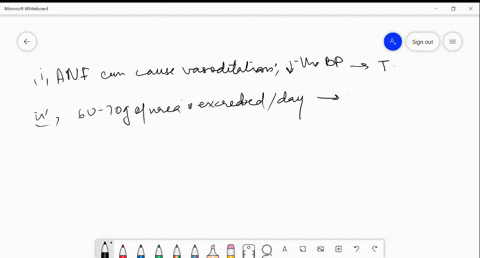 Microsoft Whiteboard
Sign out
(i), ANF can cause vasodilations; ↓ the BP → T.
(ii), 60-70g of urea is excreted/day →
A